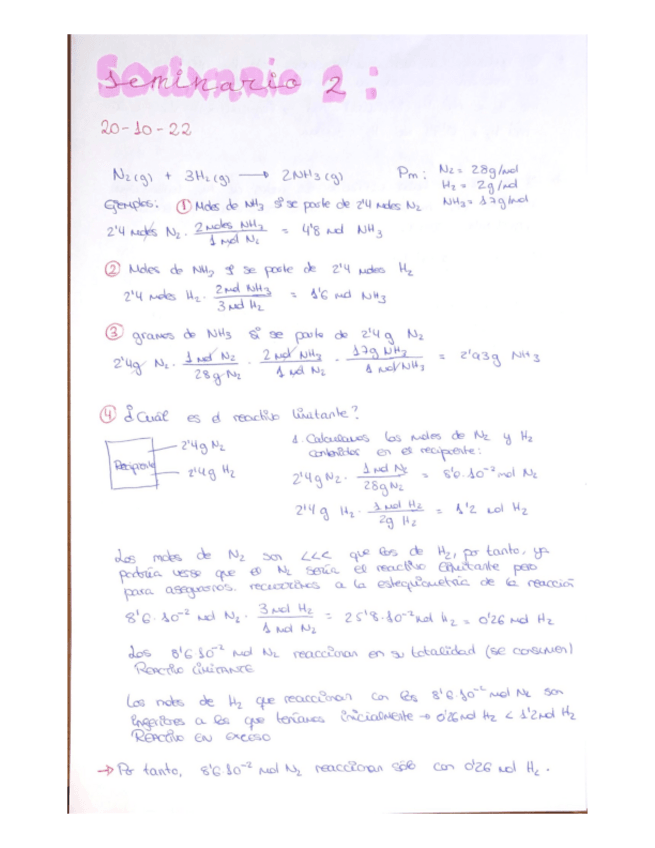 Seminario 2:
20-10-22
N₂(g) + 3H₂(g) → 2NH₃(g) Pm: N₂ = 28g/mol
H₂ = 2g/mol
NH₃ = 17g/mol
Ejemplos: ① Moles de NH₃ si se parte de 2'4 moles N₂
2'4 moles N₂ · 2 moles NH₃ / 1 mol N₂ = 4'8 mol NH₃
② Moles de NH₃ si se parte de 2'4 moles H₂
2'4 moles H₂ · 2 mol NH₃ / 3 mol H₂ = 1'6 mol NH₃
③ gramos de NH₃ si se parte de 2'4 g N₂
2'4g N₂ · 1 mol N₂ / 28g N₂ · 2 mol NH₃ / 1 mol N₂ · 17g NH₃ / 1 mol NH₃ = 2'93g NH₃
④ ¿Cuál es el reactivo limitante?
Recipiente
2'4g N₂
2'4g H₂
1. Calculamos los moles de N₂ y H₂
contenidos en el recipiente:
2'4g N₂ · 1 mol N₂ / 28g N₂ = 8'6·10⁻² mol N₂
2'4 g H₂ · 1 mol H₂ / 2g H₂ = 1'2 mol H₂
Los moles de N₂ son <<< que los de H₂, por tanto, ya
podría verse que el N₂ sería el reactivo limitante pero
para asegurarnos, recurrimos a la estequiometría de la reacción
8'6·10⁻² mol N₂ · 3 mol H₂ / 1 mol N₂ = 25'8·10⁻² mol H₂ = 0'26 mol H₂
Los 8'6·10⁻² mol N₂ reaccionan en su totalidad (se consumen)
REACTIVO LIMITANTE
Los moles de H₂ que reaccionan con los 8'6·10⁻² mol N₂ son
inferiores a los que teníamos inicialmente → 0'26 mol H₂ < 1'2 mol H₂
REACTIVO EN EXCESO
→ Por tanto, 8'6·10⁻² mol N₂ reaccionan sólo con 0'26 mol H₂.